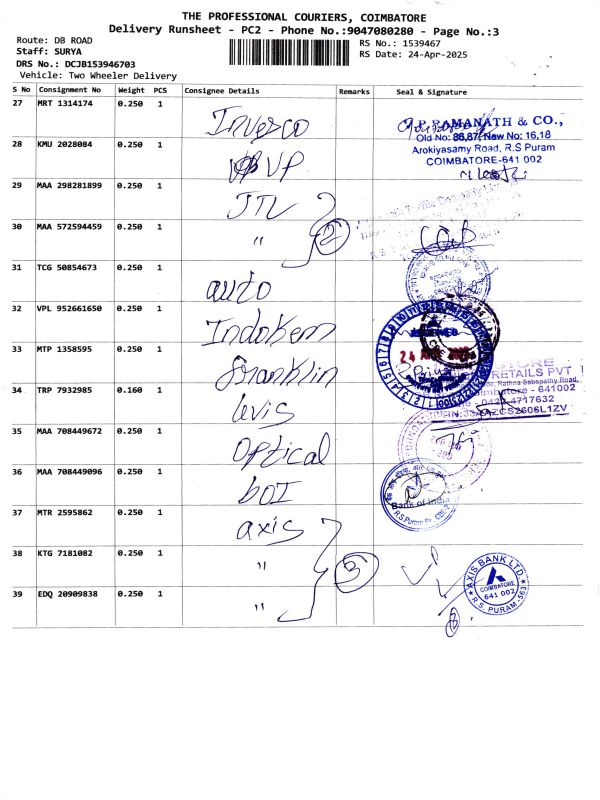 THE PROFESSIONAL COURIERS, COIMBATORE
Delivery Runsheet - PC2 - Phone No.:9047080280 - Page No.:3
Route: DB ROAD
RS No.: 1539467
Staff: SURYA
RS Date: 24-Apr-2025
DRS No.: DCJB153946703
Vehicle: Two Wheeler Delivery
S No Consignment No Weight PCS Consignee Details Remarks Seal & Signature
27 MRT 1314174 0.250 1 Invesco
P.RAMANATH & CO.,
Old No: 86,87/New No: 16,18
Arokiyasamy Road, R.S Puram
COIMBATORE-641 002
28 KMU 2028084 0.250 1 VP
29 MAA 298281899 0.250 1 JTL
30 MAA 572594459 0.250 1 " 2
31 TCG 50854673 0.250 1 auto
32 VPL 952661650 0.250 1 Indokem
33 MTP 1358595 0.250 1 Franklin
24
RETAILS PVT
Rathna Sabapathy Road,
- 641002
0422-4717632
34 TRP 7932985 0.160 1 levis
35 MAA 708449672 0.250 1 optical
36 MAA 708449096 0.250 1 boI
Bank of India
R.S.Puram Br. CBE-2
37 MTR 2595862 0.250 1 axis
38 KTG 7181082 0.250 1 " 3
AXIS BANK LTD.
COIMBATORE
641 002
R.S. PURAM-563
39 EDQ 20909838 0.250 1 "